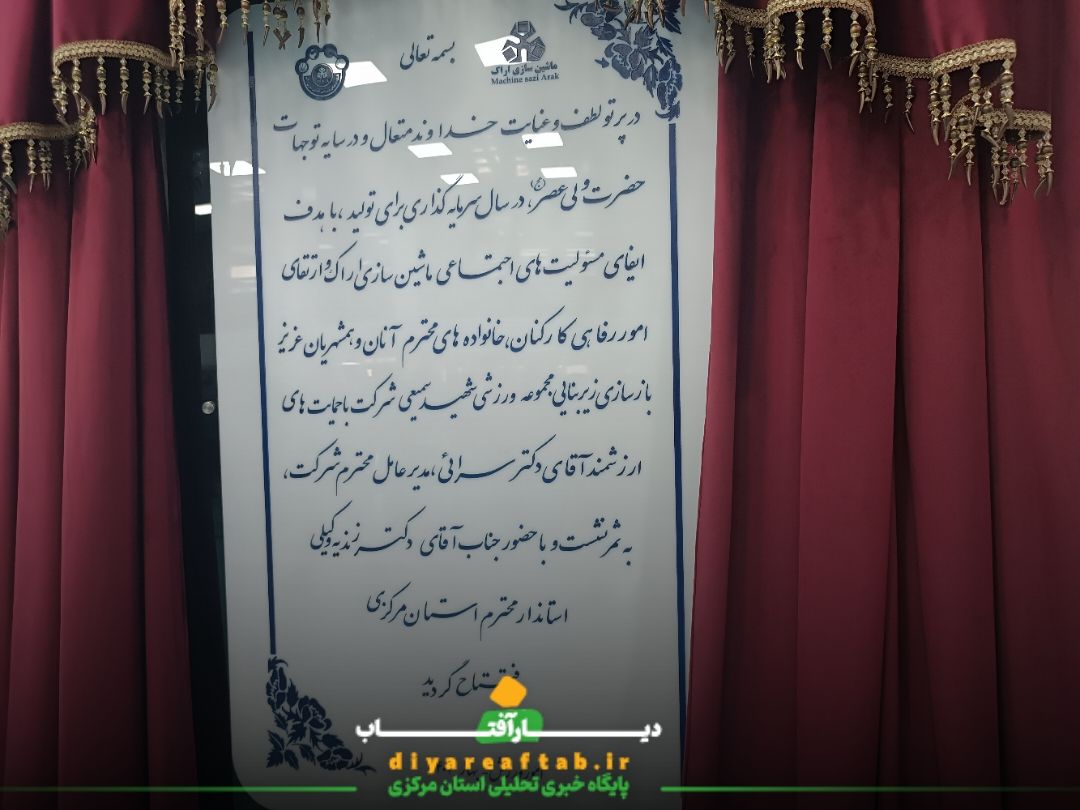 بسمه تعالی
ماشین سازی اراک
Machine sazi Arak
در پرتو لطف و عنایت خداوند متعال و در سایه توجهات
حضرت ولی عصر (عج)، در سال سرمایه گذاری برای تولید، با هدف
ایفای مسئولیت های اجتماعی ماشین سازی اراک و ارتقای
امور رفاهی کارکنان، خانواده های محترم آنان و همشهریان عزیز
بازسازی زیربنایی مجموعه ورزشی شهید سمیعی شرکت با حمایت های
ارزشمند آقای دکتر سرائی، مدیر عامل محترم شرکت،
به ثمر نشست و با حضور جناب آقای دکتر زندیه وکیلی
استاندار محترم استان مرکزی
افتتاح گردید
دیار آفتاب
diyareaftab.ir
پایگاه خبری تحلیلی استان مرکزی